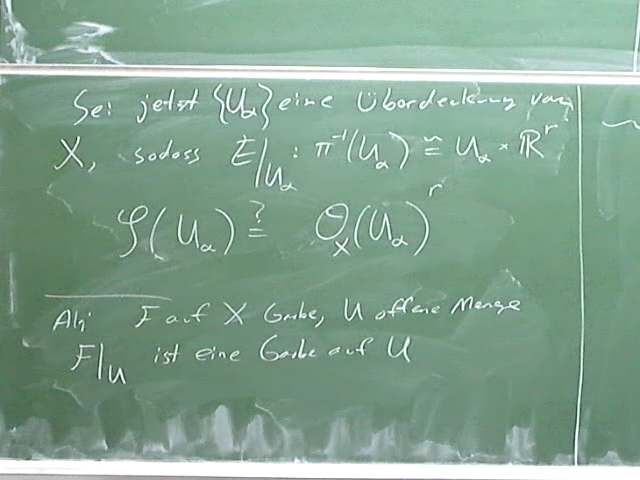 Sei jetzt {U_α} eine Überdeckung von
X, sodass E|_{U_α} : π^{-1}(U_α) ≅ U_α × ℝ^r
𝒮(U_α) ≟ 𝒪_X(U_α)^r
F auf X Garbe, U offene Menge
F|_U ist eine Garbe auf U